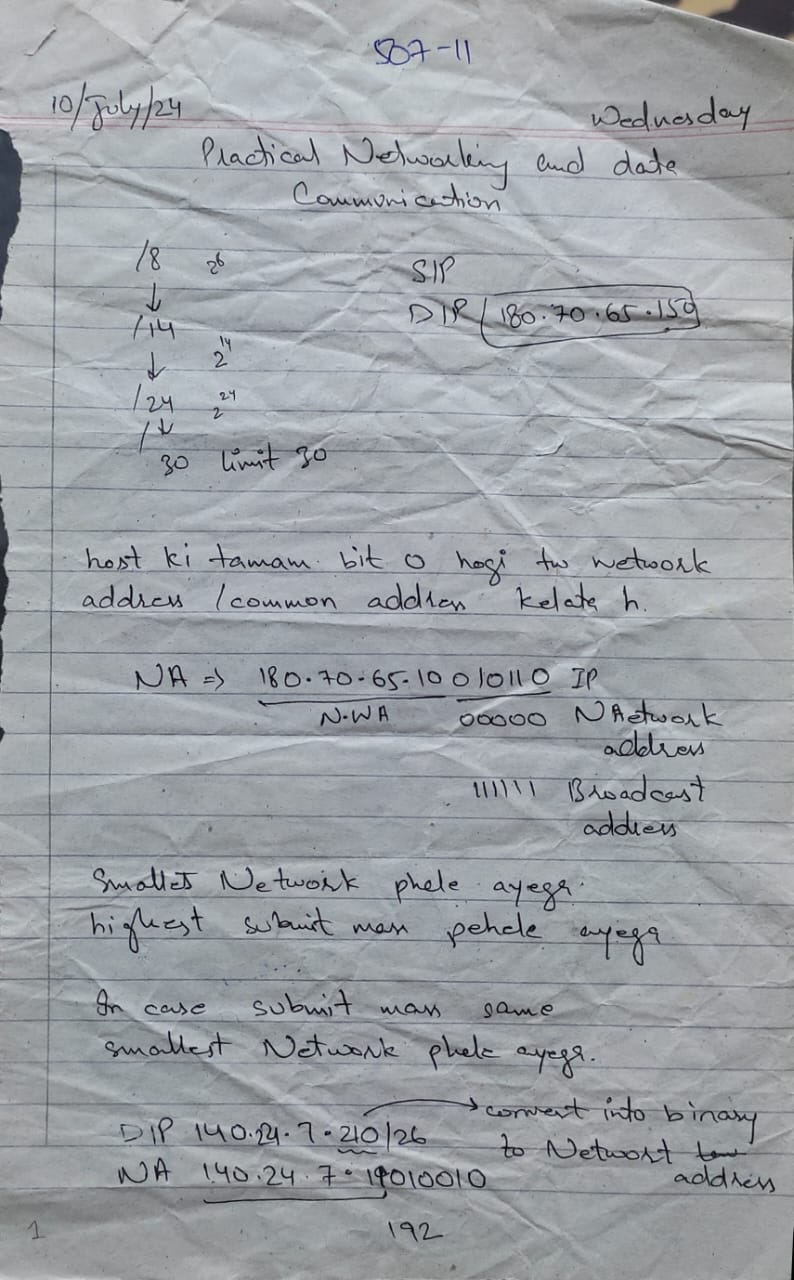 S07-11
10/July/24 Wednesday
Practical Networking and date
Communication
/8 2⁶
↓
/14
↓ 2¹⁴
/24 2²⁴
/↓
30 limit 30
SIP
DIP 180.70.65.159
host ki tamam bit 0 hogi tw network
address / common address kelata h.
NA => 180.70.65.10 010110 IP
N.WA 00000 NAetwork
address
111111 Broadcast
address
Smallest Network phele ayega.
highest submit mas pehele ayega
In case submit mas same
smallest Network phele ayega.
DIP 140.24.7.210/26 → convert into binary
to Networt address
NA 140.24.7.11010010
192
1